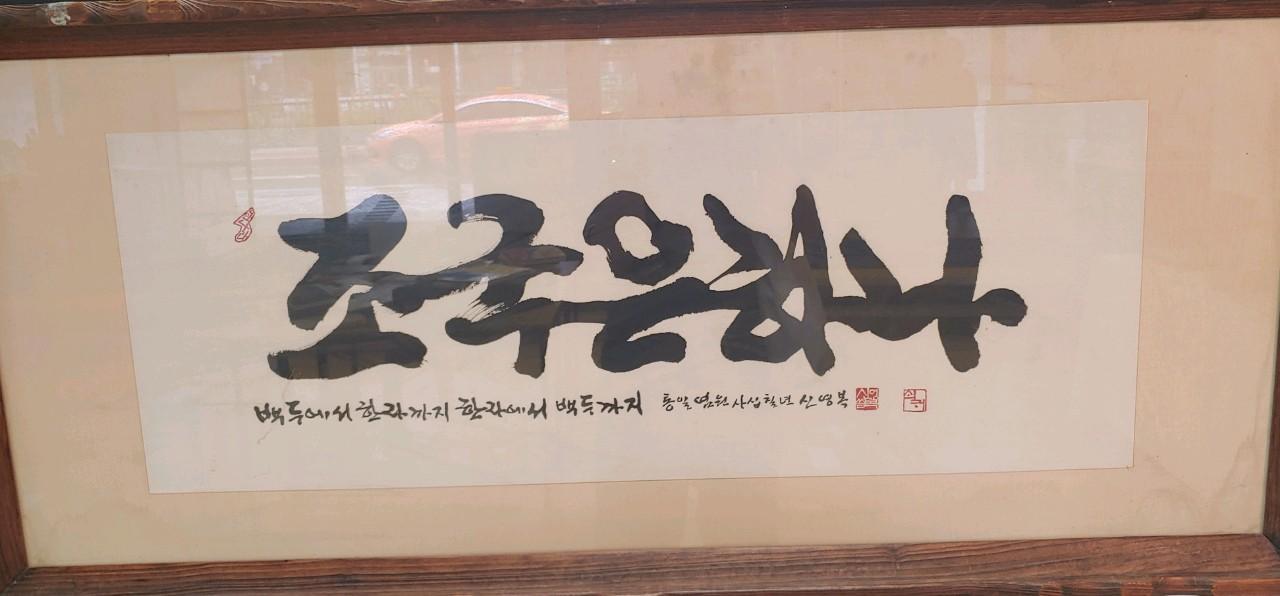 조국은하나
백두에서 한라까지 한라에서 백두까지 통일염원 사십칠년 신영복